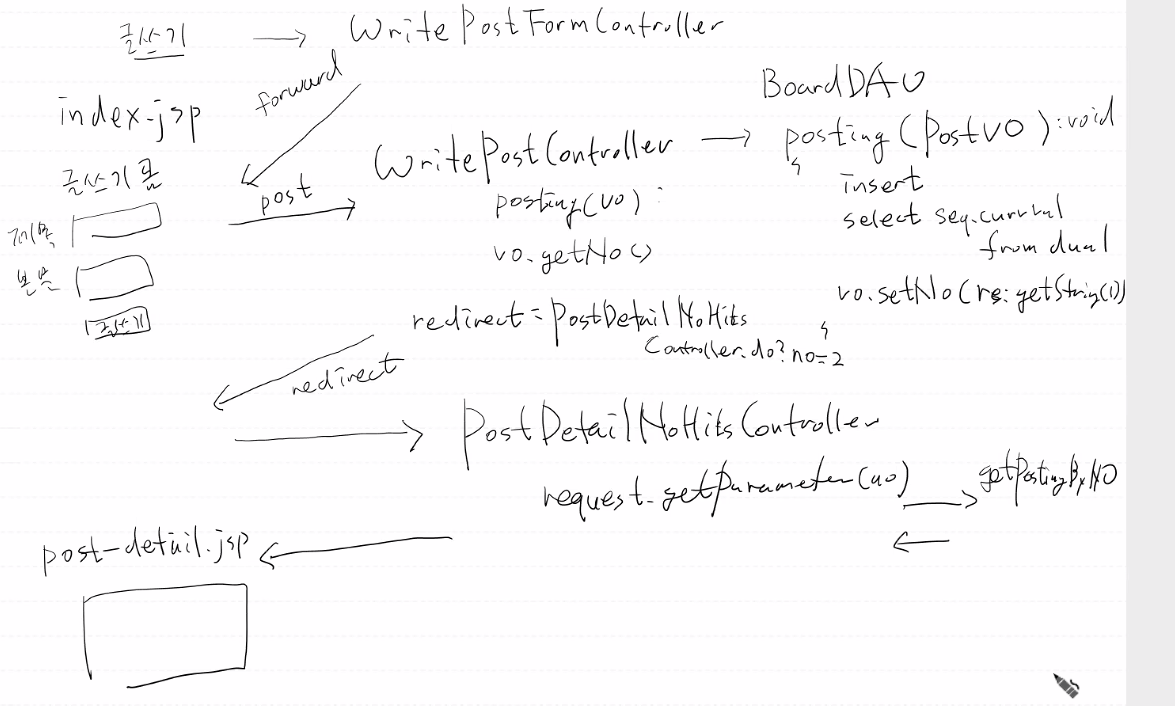 글쓰기 → WritePostFormController
forward
index.jsp
BoardDAO
글쓰기 폼
post
WritePostController → posting(PostVO):void
제목
posting(vo):
insert
본문
vo.getNo()
select seq.currval
from dual
글쓰기
vo.setNo(rs.getString(1))
redirect:PostDetailNoHits
Controller.do?no=2
redirect
PostDetailNoHitsController
request.getParameter(no)
getPostingByNO
post-detail.jsp